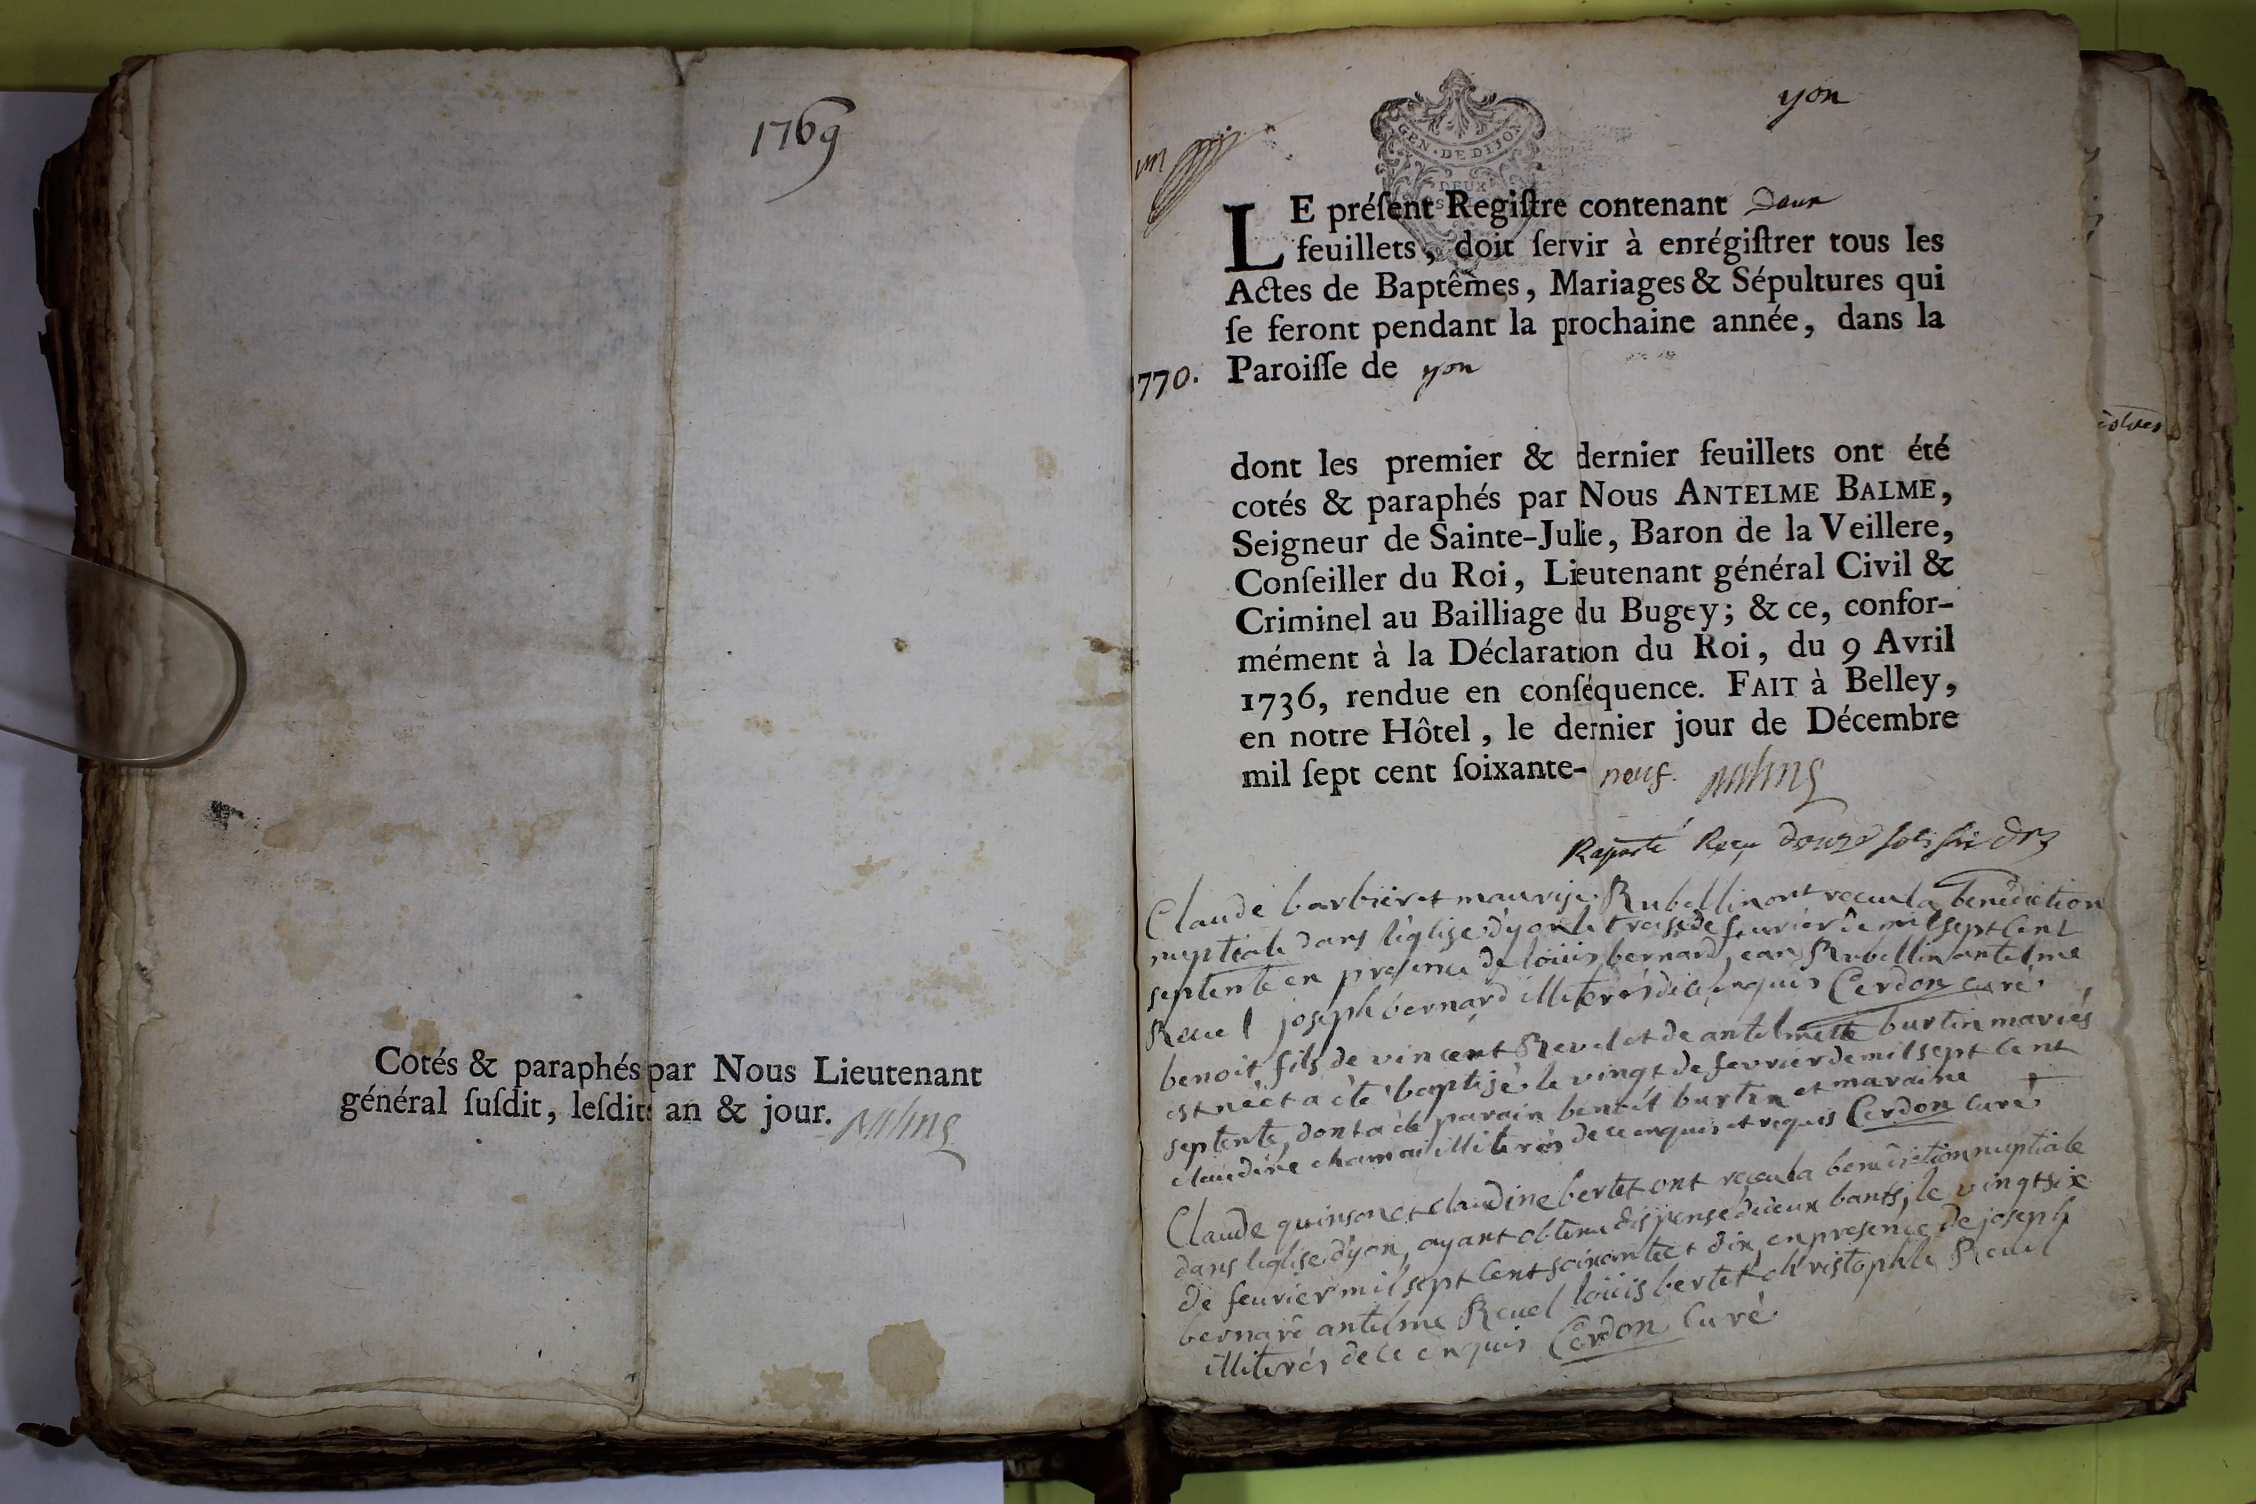 1769
Cotés & paraphés par Nous Lieutenant
général ſuſdit, leſdits an & jour.
yon
GEN. DE DIJON
DEUX
LE préſent Regiſtre contenant deux
feuillets, doit ſervir à enrégiſtrer tous les
Actes de Baptêmes, Mariages & Sépultures qui
ſe feront pendant la prochaine année, dans la
1770. Paroiſſe de yon
dont les premier & dernier feuillets ont été
cotés & paraphés par Nous ANTELME BALME,
Seigneur de Sainte-Julie, Baron de la Veillere,
Conſeiller du Roi, Lieutenant général Civil &
Criminel au Bailliage du Bugey; & ce, confor-
mément à la Déclaration du Roi, du 9 Avril
1736, rendue en conſéquence. FAIT à Belley,
en notre Hôtel, le dernier jour de Décembre
mil ſept cent ſoixante-neuf.
Raporté Reçu douze sols six
Claude barbier et maurise Rubellin ont recu la benediction
nuptiale dans l'église d'yon le treise de feurier de mil sept Cent
septente en presence de loüis bernard, jean Rubellin antelme
Reuel joseph bernard illiterés de ce enquis Cerdon curé
benoit fils de vincent Revel et de antelmette burtin mariés
est né et a èté baptisé le vingt de fevrier de mil sept Cent
septente, dont a èté parain benoit burtin et maraine
claudine chamai illiterés de ce enquis et requis Cerdon Curé
Claude quinson et claudine bertet ont recu la benediction nuptiale
dans leglise d'yon, ayant obtenu dispense de deux bants, le vingt six
de feurier mil sept Cent soixante et dix, en presence de joseph
bernard antelme Reuel loüis bertet christophle Reuel
illiterés de ce enquis Cerdon Curé